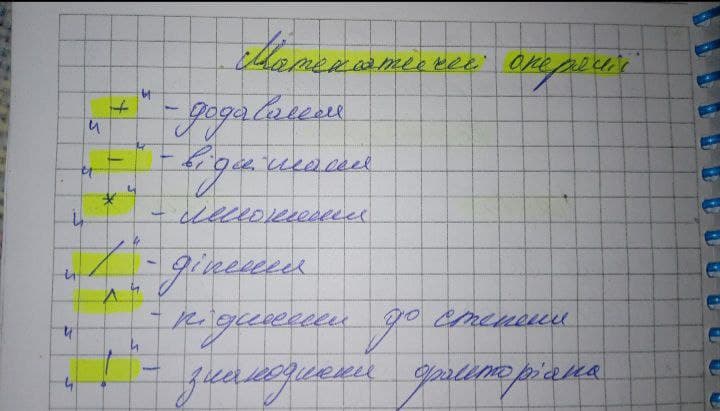 Математичні операції
„+“ – додавання
„–“ – віднімання
„*“ – множення
„/“ – ділення
„^“ – піднесення до степеня
„!“ – знаходження факторіала